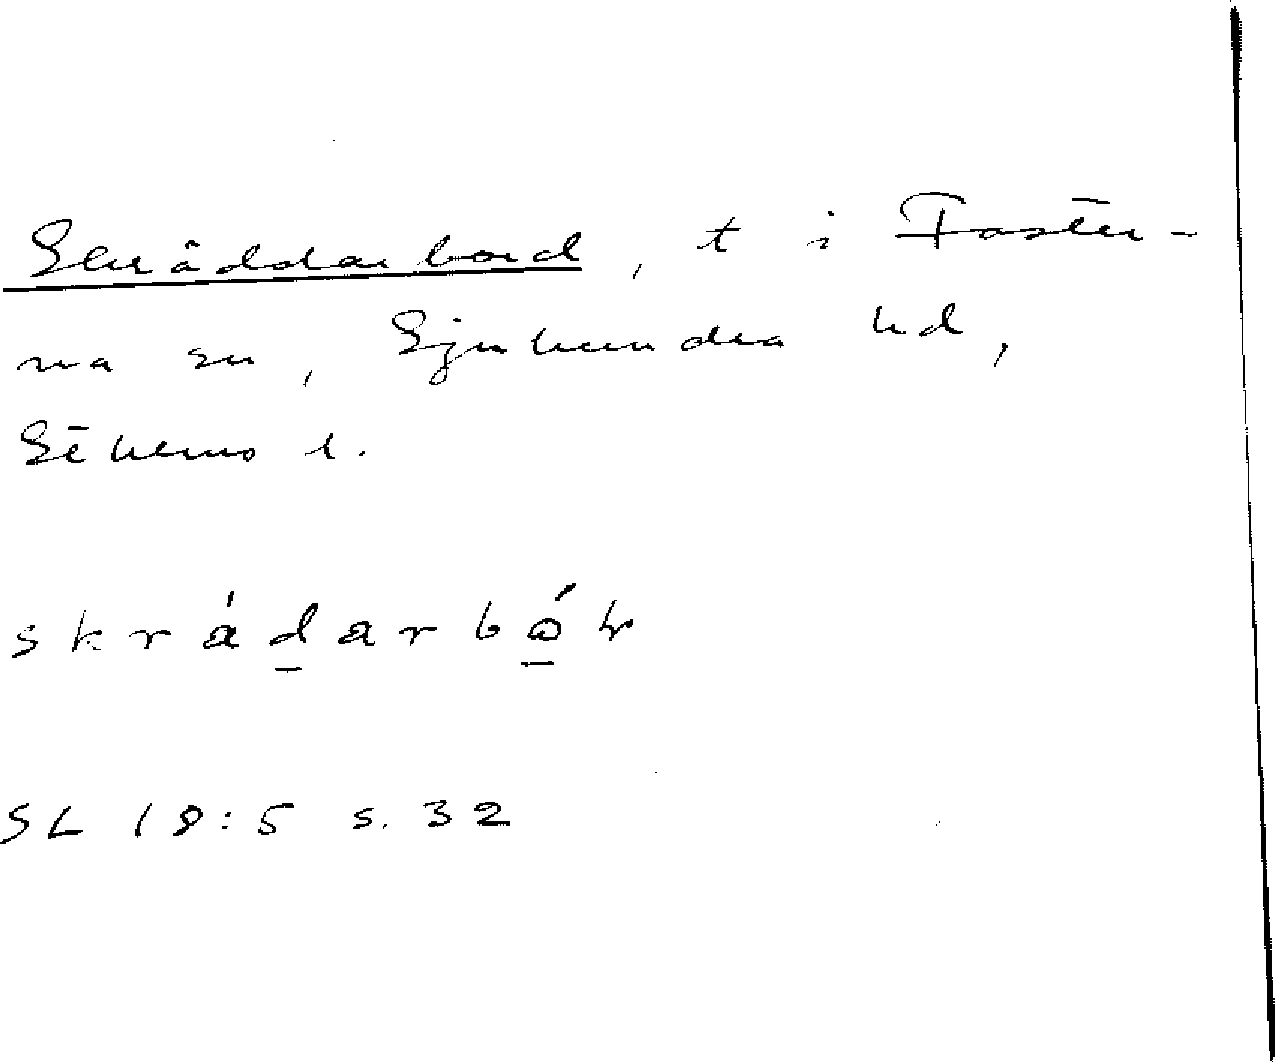 Skräddarbord, t i Faster-
na sn, Sjuhundra hd,
Sthms l.
skrädarbór
SL 18:5 s. 32